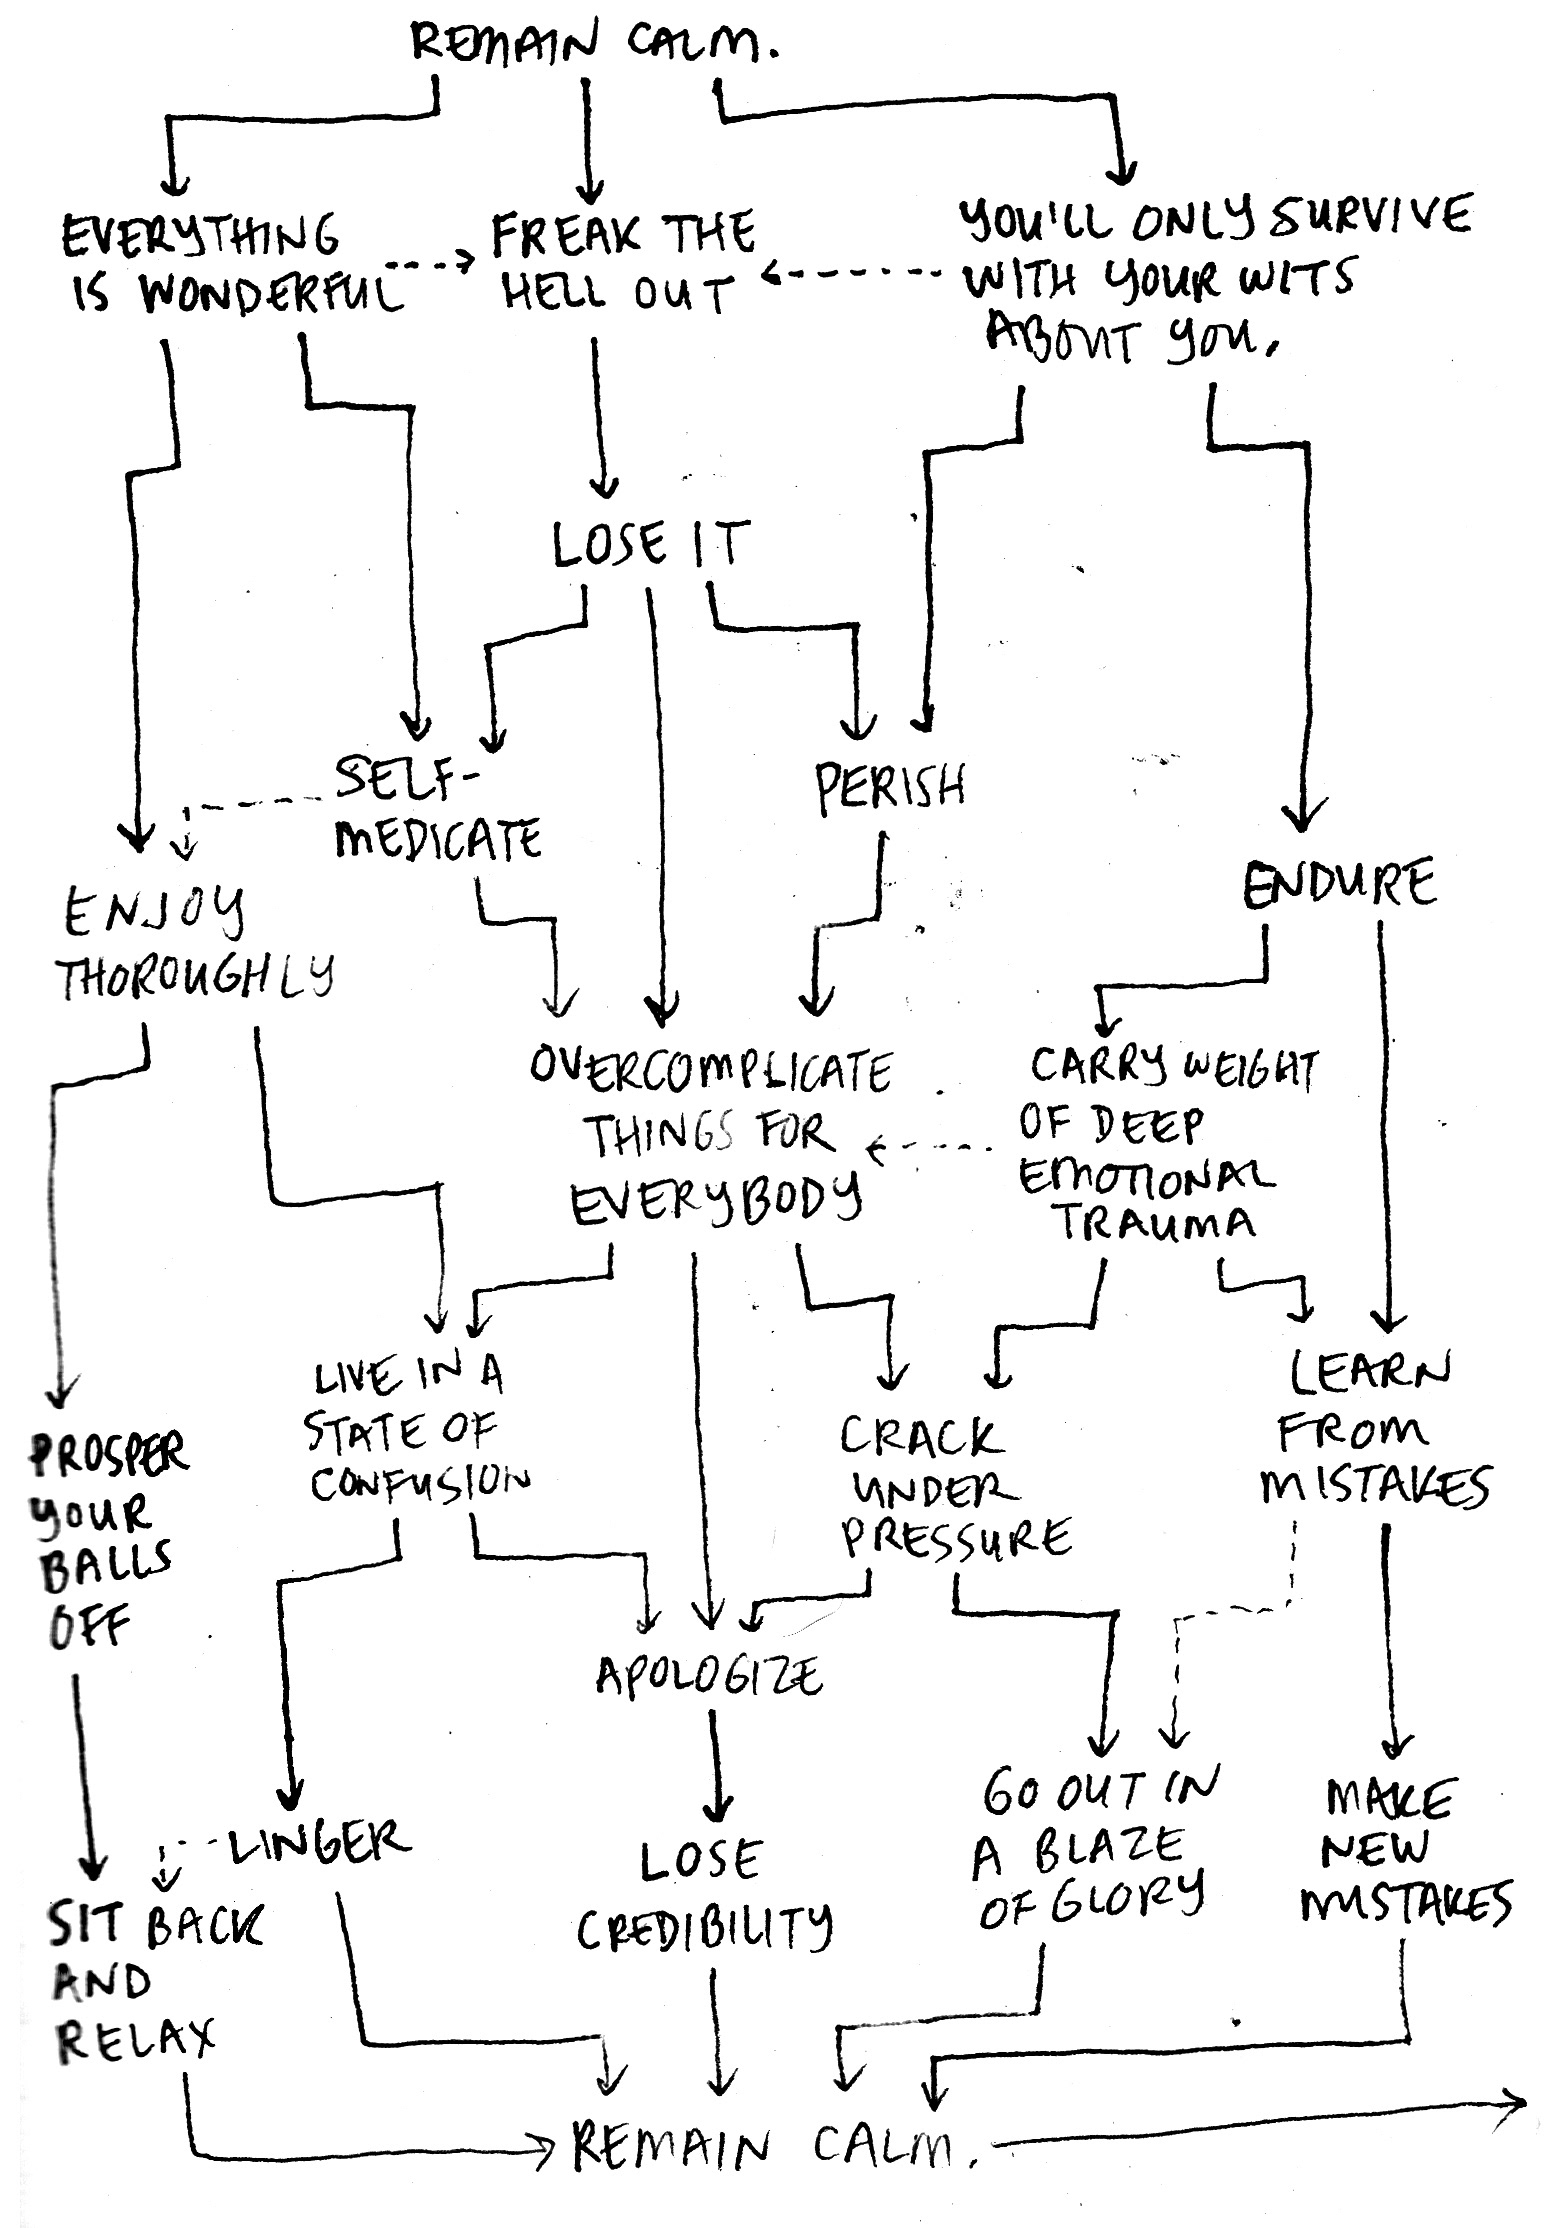 REMAIN CALM.
EVERYTHING
IS WONDERFUL
FREAK THE
HELL OUT
YOU'LL ONLY SURVIVE
WITH YOUR WITS
ABOUT YOU.
LOSE IT
SELF-
MEDICATE
PERISH
ENJOY
THOROUGHLY
ENDURE
OVERCOMPLICATE
THINGS FOR
EVERYBODY
CARRY WEIGHT
OF DEEP
EMOTIONAL
TRAUMA
PROSPER
YOUR
BALLS
OFF
LIVE IN A
STATE OF
CONFUSION
CRACK
UNDER
PRESSURE
LEARN
FROM
MISTAKES
APOLOGIZE
LINGER
SIT BACK
AND
RELAX
LOSE
CREDIBILITY
GO OUT IN
A BLAZE
OF GLORY
MAKE
NEW
MISTAKES
REMAIN CALM.